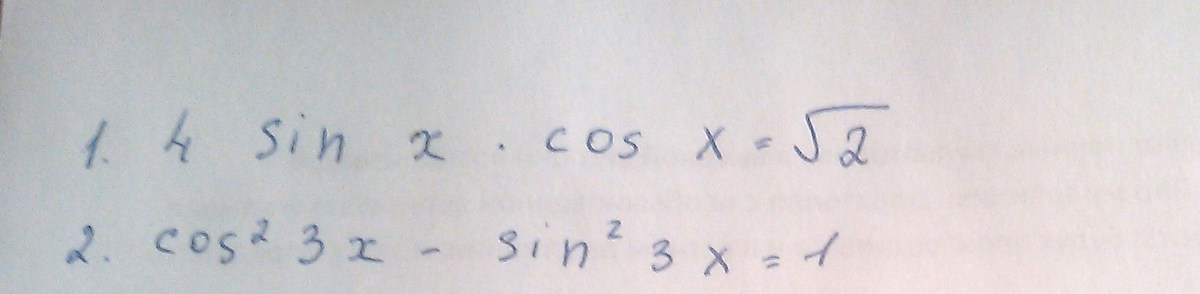 1. 4 sin x · cos x = √2
2. cos² 3x - sin² 3x = 1